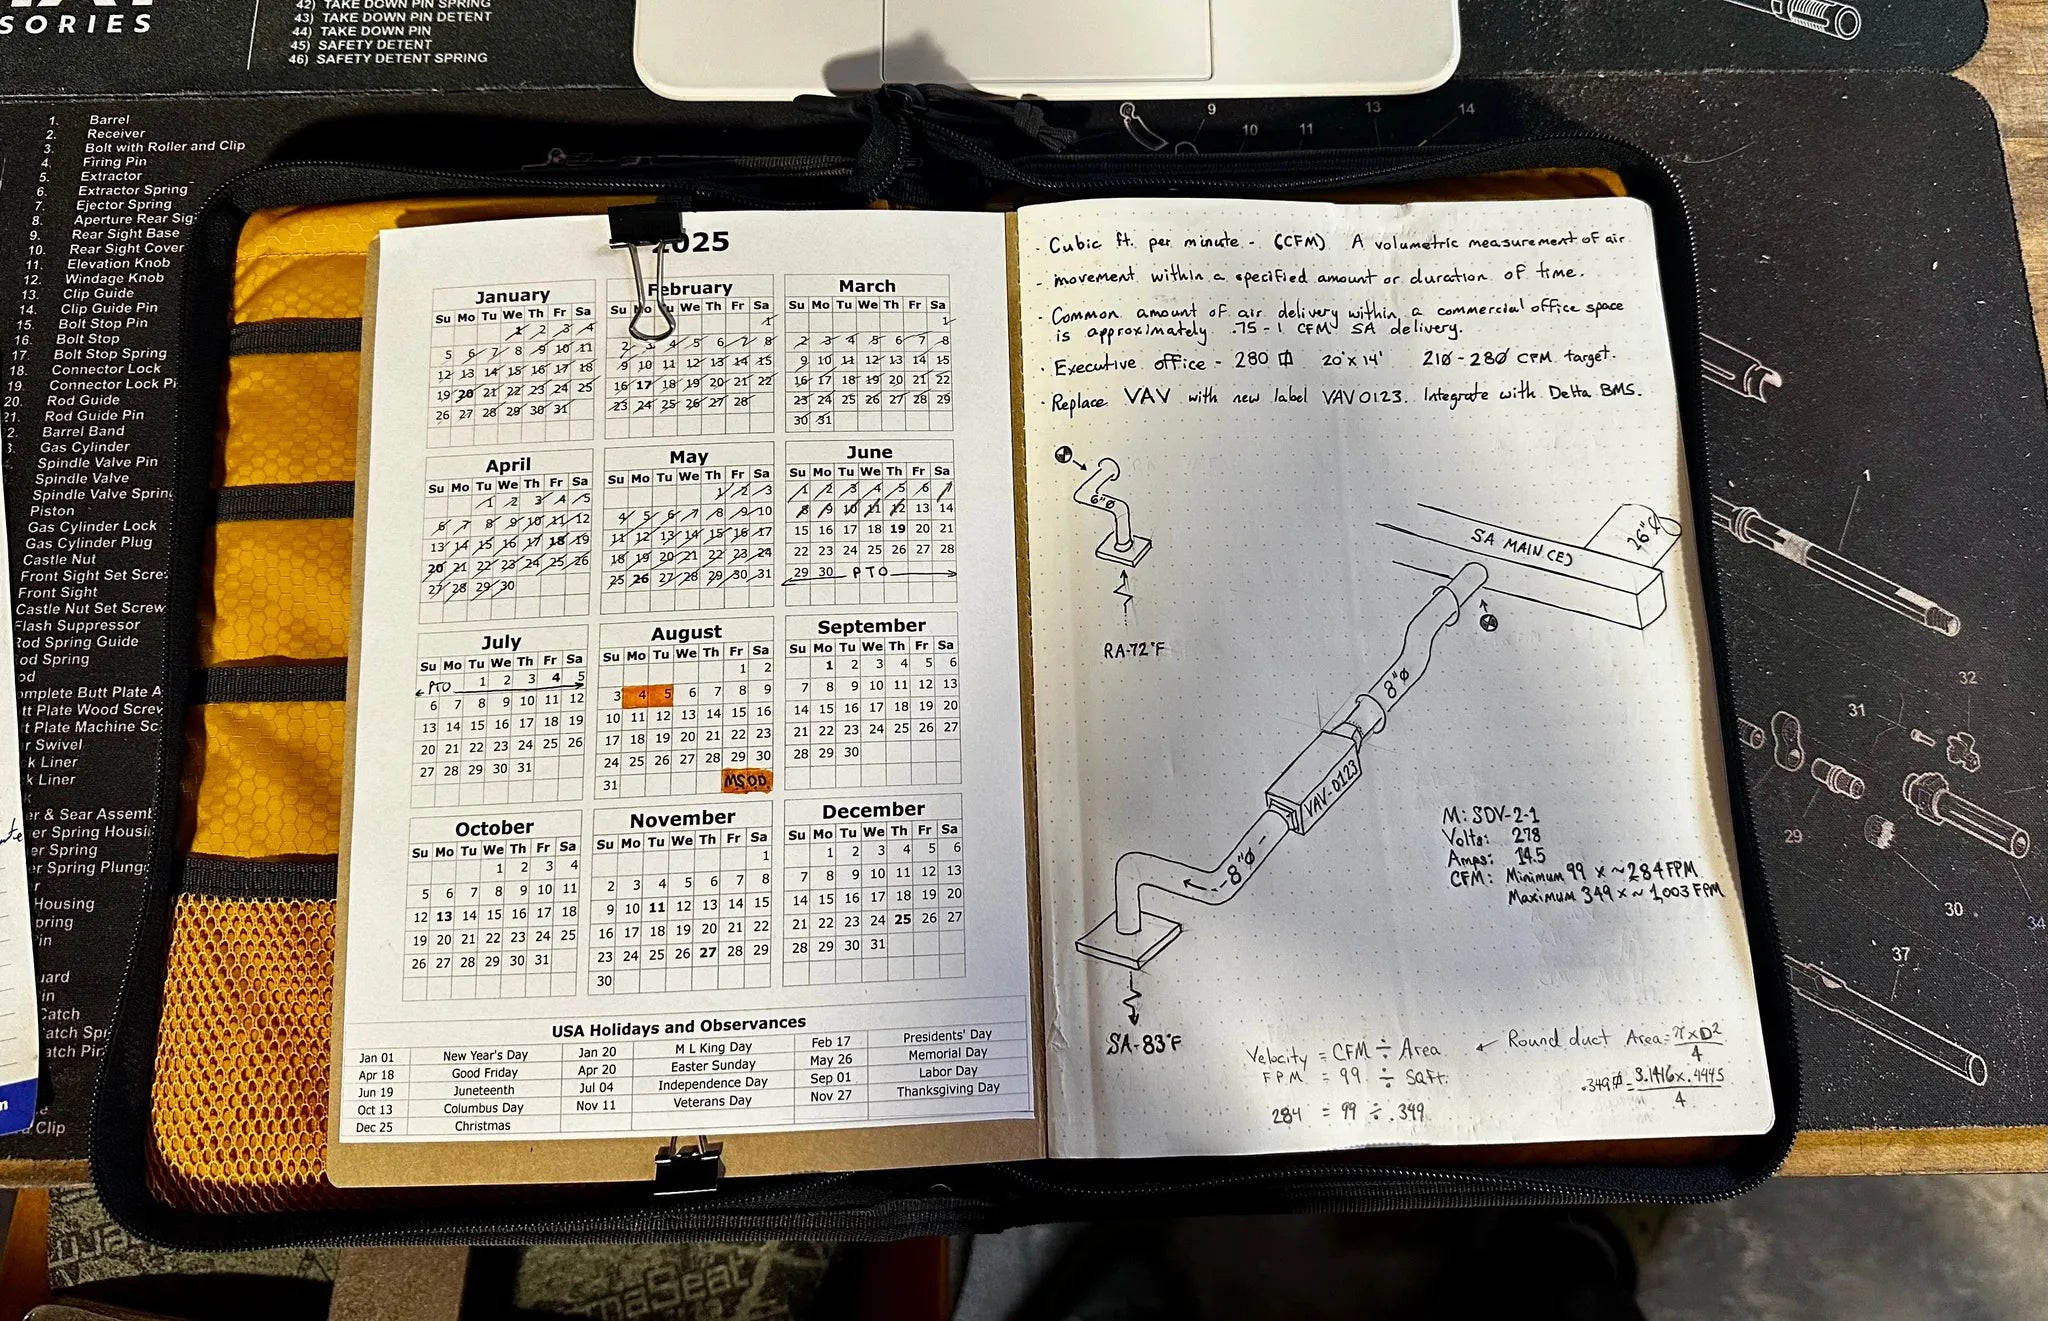 SORIES
42) TAKE DOWN PIN SPRING
43) TAKE DOWN PIN DETENT
44) TAKE DOWN PIN
45) SAFETY DETENT
46) SAFETY DETENT SPRING
1. Barrel
2. Receiver
3. Bolt with Roller and Clip
4. Firing Pin
5. Extractor
6. Extractor Spring
7. Ejector Spring
8. Aperture Rear Sig
9. Rear Sight Base
10. Rear Sight Cover
11. Elevation Knob
12. Windage Knob
13. Clip Guide
14. Clip Guide Pin
15. Bolt Stop Pin
16. Bolt Stop
17. Bolt Stop Spring
18. Connector Lock
19. Connector Lock Pi
20. Rod Guide
21. Rod Guide Pin
2. Barrel Band
Gas Cylinder
Spindle Valve Pin
Spindle Valve
Spindle Valve Sprin
Piston
Gas Cylinder Lock
Gas Cylinder Plug
Castle Nut
Front Sight Set Scre
Front Sight
Castle Nut Set Screw
Flash Suppressor
Rod Spring Guide
od Spring
od
omplete Butt Plate A
tt Plate Wood Screw
t Plate Machine Sc
r Swivel
k Liner
k Liner
er & Sear Assemb
er Spring Housi
er Spring
er Spring Plung
er
Housing
pring
in
uard
in
Catch
atch Spr
atch Pin
Clip
2025
January
Su Mo Tu We Th Fr Sa
1 2 3 4
5 6 7 8 9 10 11
12 13 14 15 16 17 18
19 20 21 22 23 24 25
26 27 28 29 30 31
February
Su Mo Tu We Th Fr Sa
1
2 3 4 5 6 7 8
9 10 11 12 13 14 15
16 17 18 19 20 21 22
23 24 25 26 27 28
March
Su Mo Tu We Th Fr Sa
1
2 3 4 5 6 7 8
9 10 11 12 13 14 15
16 17 18 19 20 21 22
23 24 25 26 27 28 29
30 31
April
Su Mo Tu We Th Fr Sa
1 2 3 4 5
6 7 8 9 10 11 12
13 14 15 16 17 18 19
20 21 22 23 24 25 26
27 28 29 30
May
Su Mo Tu We Th Fr Sa
1 2 3
4 5 6 7 8 9 10
11 12 13 14 15 16 17
18 19 20 21 22 23 24
25 26 27 28 29 30 31
June
Su Mo Tu We Th Fr Sa
1 2 3 4 5 6 7
8 9 10 11 12 13 14
15 16 17 18 19 20 21
22 23 24 25 26 27 28
29 30 PTO
July
Su Mo Tu We Th Fr Sa
PTO 1 2 3 4 5
6 7 8 9 10 11 12
13 14 15 16 17 18 19
20 21 22 23 24 25 26
27 28 29 30 31
August
Su Mo Tu We Th Fr Sa
1 2
3 4 5 6 7 8 9
10 11 12 13 14 15 16
17 18 19 20 21 22 23
24 25 26 27 28 29 30
31 MSOD
September
Su Mo Tu We Th Fr Sa
1 2 3 4 5 6
7 8 9 10 11 12 13
14 15 16 17 18 19 20
21 22 23 24 25 26 27
28 29 30
October
Su Mo Tu We Th Fr Sa
1 2 3 4
5 6 7 8 9 10 11
12 13 14 15 16 17 18
19 20 21 22 23 24 25
26 27 28 29 30 31
November
Su Mo Tu We Th Fr Sa
1
2 3 4 5 6 7 8
9 10 11 12 13 14 15
16 17 18 19 20 21 22
23 24 25 26 27 28 29
30
December
Su Mo Tu We Th Fr Sa
1 2 3 4 5 6
7 8 9 10 11 12 13
14 15 16 17 18 19 20
21 22 23 24 25 26 27
28 29 30 31
USA Holidays and Observances
Jan 01 New Year's Day Jan 20 M L King Day Feb 17 Presidents' Day
Apr 18 Good Friday Apr 20 Easter Sunday May 26 Memorial Day
Jun 19 Juneteenth Jul 04 Independence Day Sep 01 Labor Day
Oct 13 Columbus Day Nov 11 Veterans Day Nov 27 Thanksgiving Day
Dec 25 Christmas
- Cubic ft. per minute - (CFM) A volumetric measurement of air
- movement within a specified amount or duration of time.
· Common amount of air delivery within a commercial office space
is approximately .75 - 1 CFM SA delivery.
· Executive office - 280 20'x14' 210-280 CFM target.
· Replace VAV with new label VAV0123. Integrate with Delta BMS.
6"Ø
RA-72°F
SA MAIN (E)
16"Ø
8"Ø
VAV-0123
8"Ø
SA-83°F
M: SDV-2-1
Volts: 278
Amps: 14.5
CFM: Minimum 99 x ~284 FPM
Maximum 349 x ~1,003 FPM
Velocity = CFM ÷ Area ← Round duct Area = π x D²/4
FPM = 99 ÷ SQFt.
.349 Ø = 3.1416 x .4445/4
284 = 99 ÷ .349
9
10
11
13
14
1
32
31
29
30
34
37